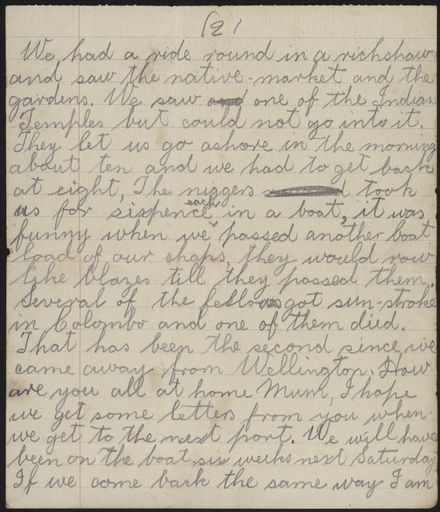 (2)
We had a ride round in a richshaw
and saw the native-market and the
gardens. We saw and one of the Indian
Temples but could not go into it.
They let us go ashore in the morning
about ten and we had to get back
at eight, The niggers took
us for sixpence each in a boat, it was
funny when we passed another boat
load of our chaps, they would row
like blazes till they passed them.
Several of the fellows got sun-stroke
in Colombo and one of them died.
That has been the second since we
came away from Wellington. How
are you all at home Mum, I hope
we get some letters from you when
we get to the next port. We will have
been on the boat six weeks next Saturday
If we come back the same way I am